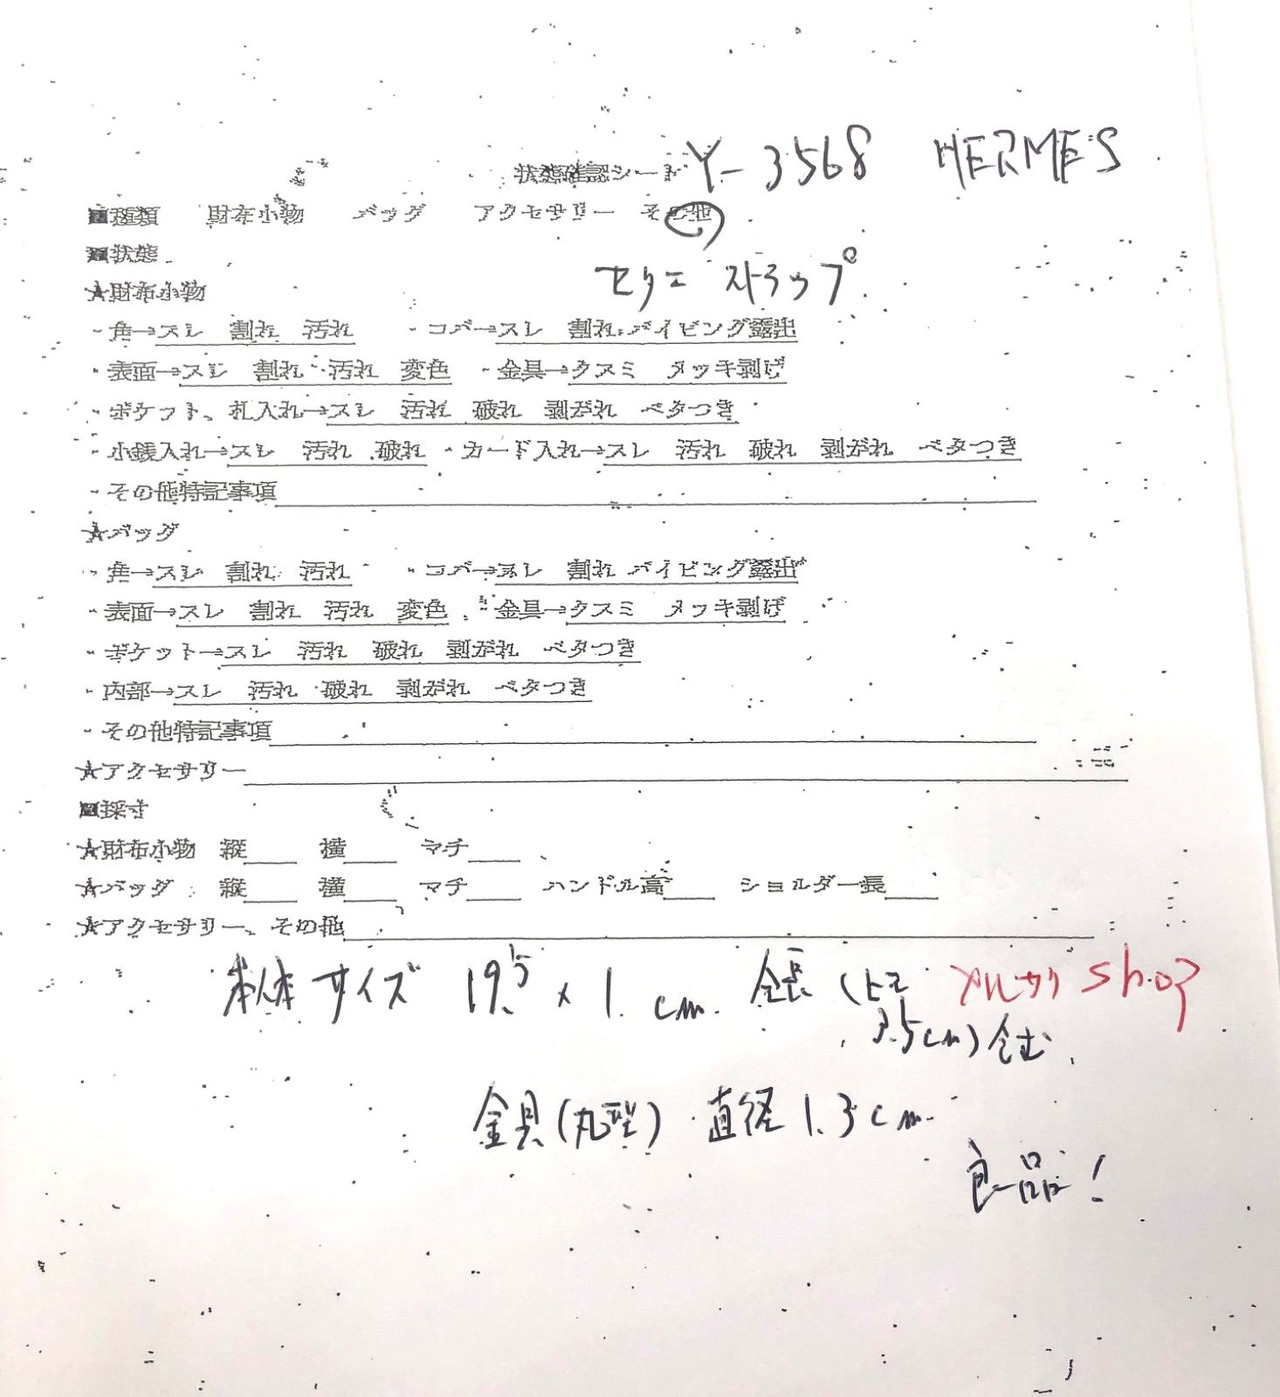 状態確認シート Y-3568 HERMES
■種類 財布小物 バッグ アクセサリー その他
■状態
セリエ ストラップ
★財布小物
・角→スレ 割れ 汚れ ・コバ→スレ 割れ パイピング露出
・表面→スレ 割れ 汚れ 変色 ・金具→クスミ メッキ剥げ
・ポケット、札入れ→スレ 汚れ 破れ 剥がれ ベタつき
・小銭入れ→スレ 汚れ 破れ ・カード入れ→スレ 汚れ 破れ 剥がれ ベタつき
・その他特記事項
★バッグ
・角→スレ 割れ 汚れ ・コバ→スレ 割れ パイピング露出
・表面→スレ 割れ 汚れ 変色 ・金具→クスミ メッキ剥げ
・ポケット→スレ 汚れ 破れ 剥がれ ベタつき
・内部→スレ 汚れ 破れ 剥がれ ベタつき
・その他特記事項
★アクセサリー
■採寸
★財布小物 縦 横 マチ
★バッグ 縦 横 マチ ハンドル高 ショルダー長
★アクセサリー、その他
本体サイズ 19.5 x 1 cm. 全長 メルカリ shop
3.5cm) 含む
金具(丸型) 直径1.3cm.
良品!